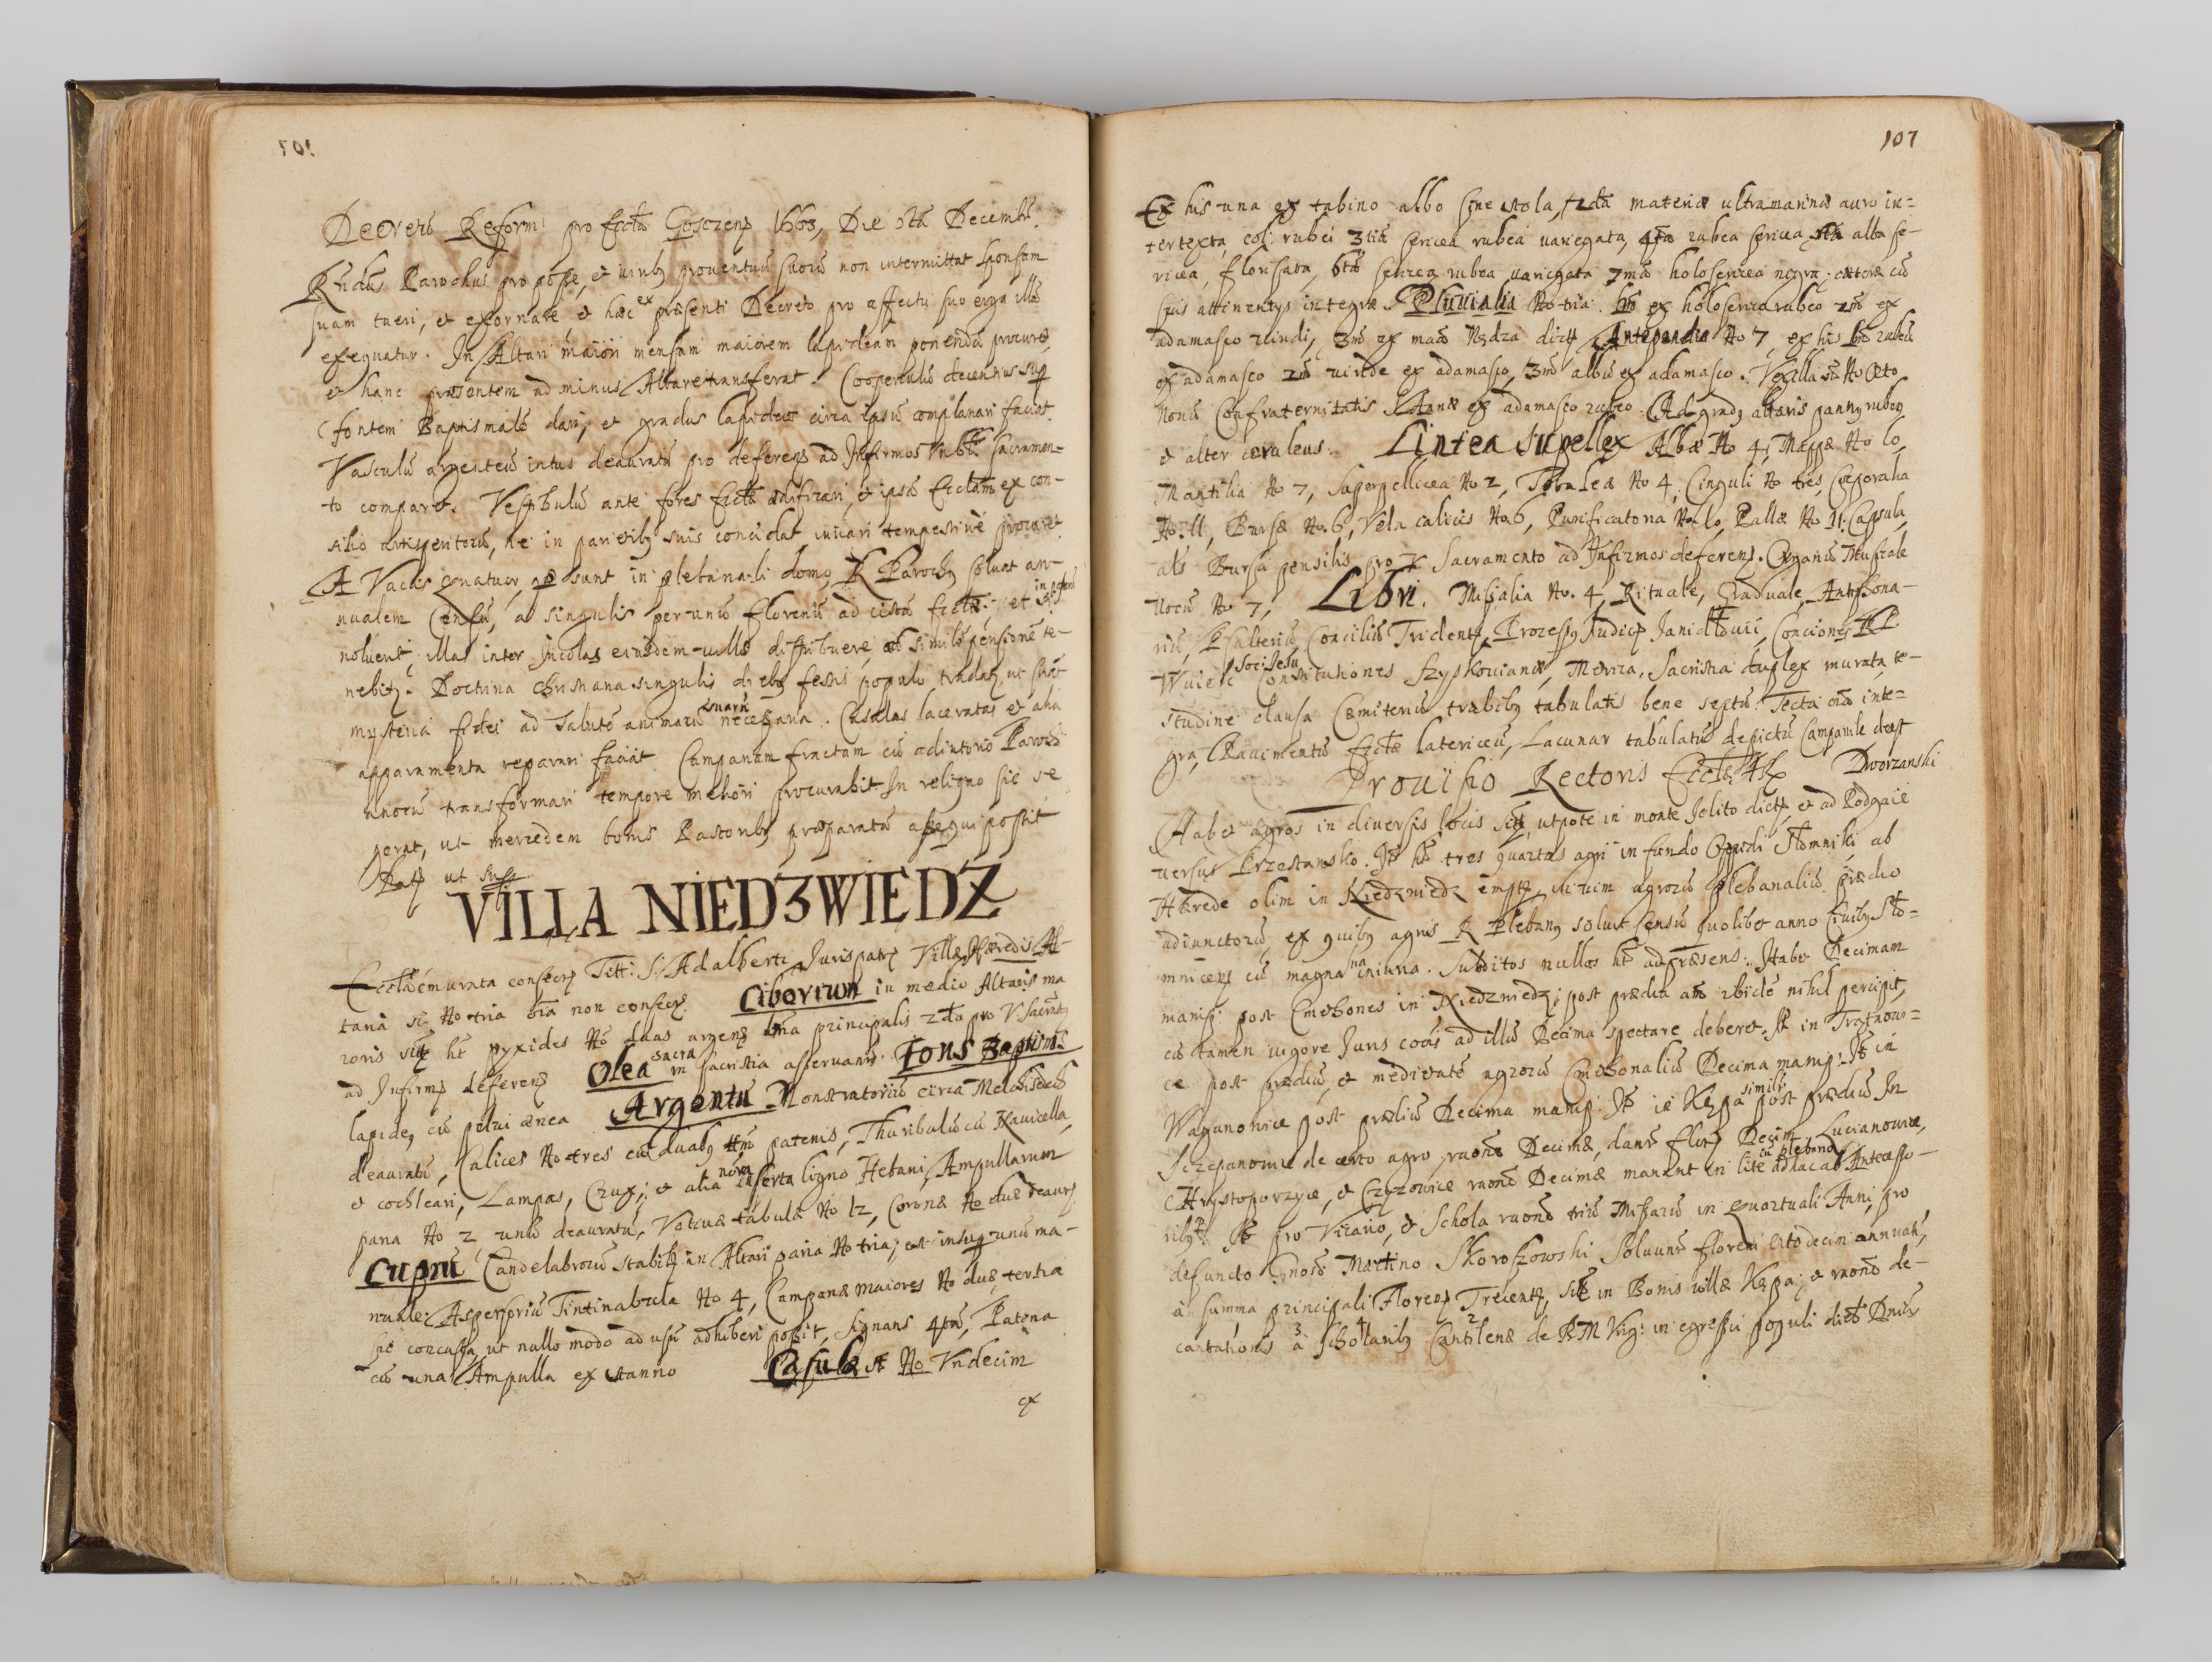 Decretũ Reform: pro Eccla Goszczeñ 1663, Die 6ta Decembr.
Rndus Parochus pro posse, et viribʒ prouentuũ suorũ non intermittat sponsam
suam tueri, et exornare et hæc ex præsenti Decreto pro affectu suo erga illã
exequatur. In Altari maiori mensam maiorem lapideam ponendã procuret,
et hanc præsentem ad minus Altare transferat. Cooperculũ decentius sup
fontem Baptismalẽ dari, et gradus lapideos circa ipsũ complanari faciat.
Vasculũ argenteũ intus deauratũ pro deferen ad Infirmos Vnbli Sacramen-
to comparet. Vestibulũ ante fores Ecclæ ædificari, et ipsã Ecclam ex con-
silio artisperitorũ, ne in parietibʒ suis concidat iuuari tempestiuè procuret
A Vaccis quatuor, quæ sunt in plebanali domo, R Parochʒ soluat an-
nualem Censũ, a singulis per unũ florenũ ad cistã Ecclæ: et
noluerit, illas inter Incolas eiusdem villæ distribuere, ad similẽ pensionẽ te-
nebitʒ. Doctrina Christiana singulis diebʒ festis populo tradatʒ, ut sciat
mysteria fidei ad salutẽ animarũ suarũ necessaria. Casulas laceratas et alia
apparamenta reparari faciat. Campanam fractam cũ adiutorio Parochi
anorũ transformari tempore meliori procurabit. In reliquo sic se
gerat, ut mercedem bonis Pastoribʒ præparatã assequi possit
Dat ut sup
VILLA NIEDZWIEDZ
Eccla murata consecr Titt: S. Adalberti Iurispatr Villæ Hæredis Al-
taria st No tria oia non consecr. Ciborium in medio Altaris ma
ioris sit ht pyxides No duas argen una principalis 2da pro V. Sacrãto
ad Infirm deferen Olea sacra in sacristia asseruantr. Fons Baptism:
lapideʒ cũ pelui ænea Argentũ Monstratoriũ circa Melchisedech
deauratũ, Calices No tres cũ duabʒ tm patenis, Thuribulũ cũ Nauicella,
et cochleari, Lampas, Crux; et alia noua inserta ligno Hebani, Ampullarum
paria No 2 unũ deauratũ, Votiuæ tabulæ No 12, Coronæ No duæ deaur
Cuprũ Candelabrorũ stabil in Altari paria No tria; et insup unũ ma-
nuale: Aspersoriũ Tintinabula No 4, Campanæ maiores No duæ, tertia
sic concussa, ut nullo modo ad usũ adhiberi possit, Signans 4ta, Patena
cũ una Ampulla ex stanno Casulæ st No Vndecim
ex
107
Ex his una ex tabino albo sine stola, 2da materiæ ultramarinæ auro in-
tertexta, col: rubei 3tia sericea rubea uariegata, 4ta rubea sericea 5ta alba se-
ricea, florisata, 6ta sericea rubea uariegata 7ma holosericea nigra; cæteræ cũ
suis attinentijs integræ. Pluuialia No tria. 1m ex holoserica rubeo 2m ex
adamasco viridi, 3m ex maa Nędza dict Antependia No 7 ex his 1m rubeũ
ex adamasco 2m viride ex adamasco, 3m albũ ex adamasco. Vexilla st No Octo
Nonũ Confraternitatis S. Annæ ex adamasco rubeo. Ad gradʒ altaris pannʒ rubeʒ
et alter cæruleus. Lintea supellex Albæ No 4, Mappæ No 10,
Mantilia No 7, Superpellicea No 2, Tobaleæ No 4, Cinguli No tres, Corporalia
No. 11, Bursæ No. 6, Vela calicis No. 6, Purificatoria No 10, Pallæ No 11. Capsula,
als Bursa pensilis pro Sacramento ad Infirmos deferen. Organũ Musicale
Vocũ No 7, Libri. Missalia No. 4, Rituale, Graduale, Antiphona-
riũ, Psalteriũ, Conciliũ Trident, Processʒ Iudic Ianidłouii, Conciones RP
Wuiek Soc: Iesu Constitutiones Szyszkouianæ, Metrica, Sacristia duplex murata te-
studine clausa Cæmiteriũ trabibʒ tabulatis bene septũ. Tecta oia inte-
gra, Pauimentũ Ecclæ latericeũ, Lacunar tabulatũ depictũ Campanile deest
Prouisio Rectoris Ecclæ Dworzanski
Habet agros in diuersis locis sit, utpote in monte Ielito dict, et ad Podgaie
uersus Przestansko. It ht tres quartas agri in fundo Oppidi Słomniki ab
Hærede olim in Niedzwiedz empt, uicum agrorũ plebanaliũ prædio
adiunctorũ, ex quibʒ agris R Plebanʒ soluit Censũ quolibet anno Ciuibʒ Sło-
mnicen cũ magna sua iniuria. Subditos nullos ht ad præsens. Habet Decimam
manip: post Cmethones in Niedzwiedz; post prædia aũt ibidẽ nihil percipit,
cũ tamen uigore Iuris cois ad illũ Decima spectare deberet. It in Trątnowi-
ce post prædiũ, et medietatẽ agrorũ Cmethonaliũ Decima manip: It in
Waganowice post prædiũ Decima manip: It in Kępa similr post prædiũ In
Szczepanowice de certo agro, raone Decimæ, dantr flor Decim, Lucianowice,
Chrystoporzyce, et Czyzowice raone Decimæ manent in lite cũ plebano adhac ab Antecesso-
ribʒ. It pro Vicario, et Schola raone triũ Missarũ in quartuali Anni, pro
defuncto Gnoso Martino Skoroszowski Soluuntr floreni octodecim annuati,
a summa principali Floren Trecent, sit in Bonis villæ Kępa; et raone de-
cantationis à Scholaribʒ Cantilenæ de B.M. Virg: in egressu populi dieb Dnicis